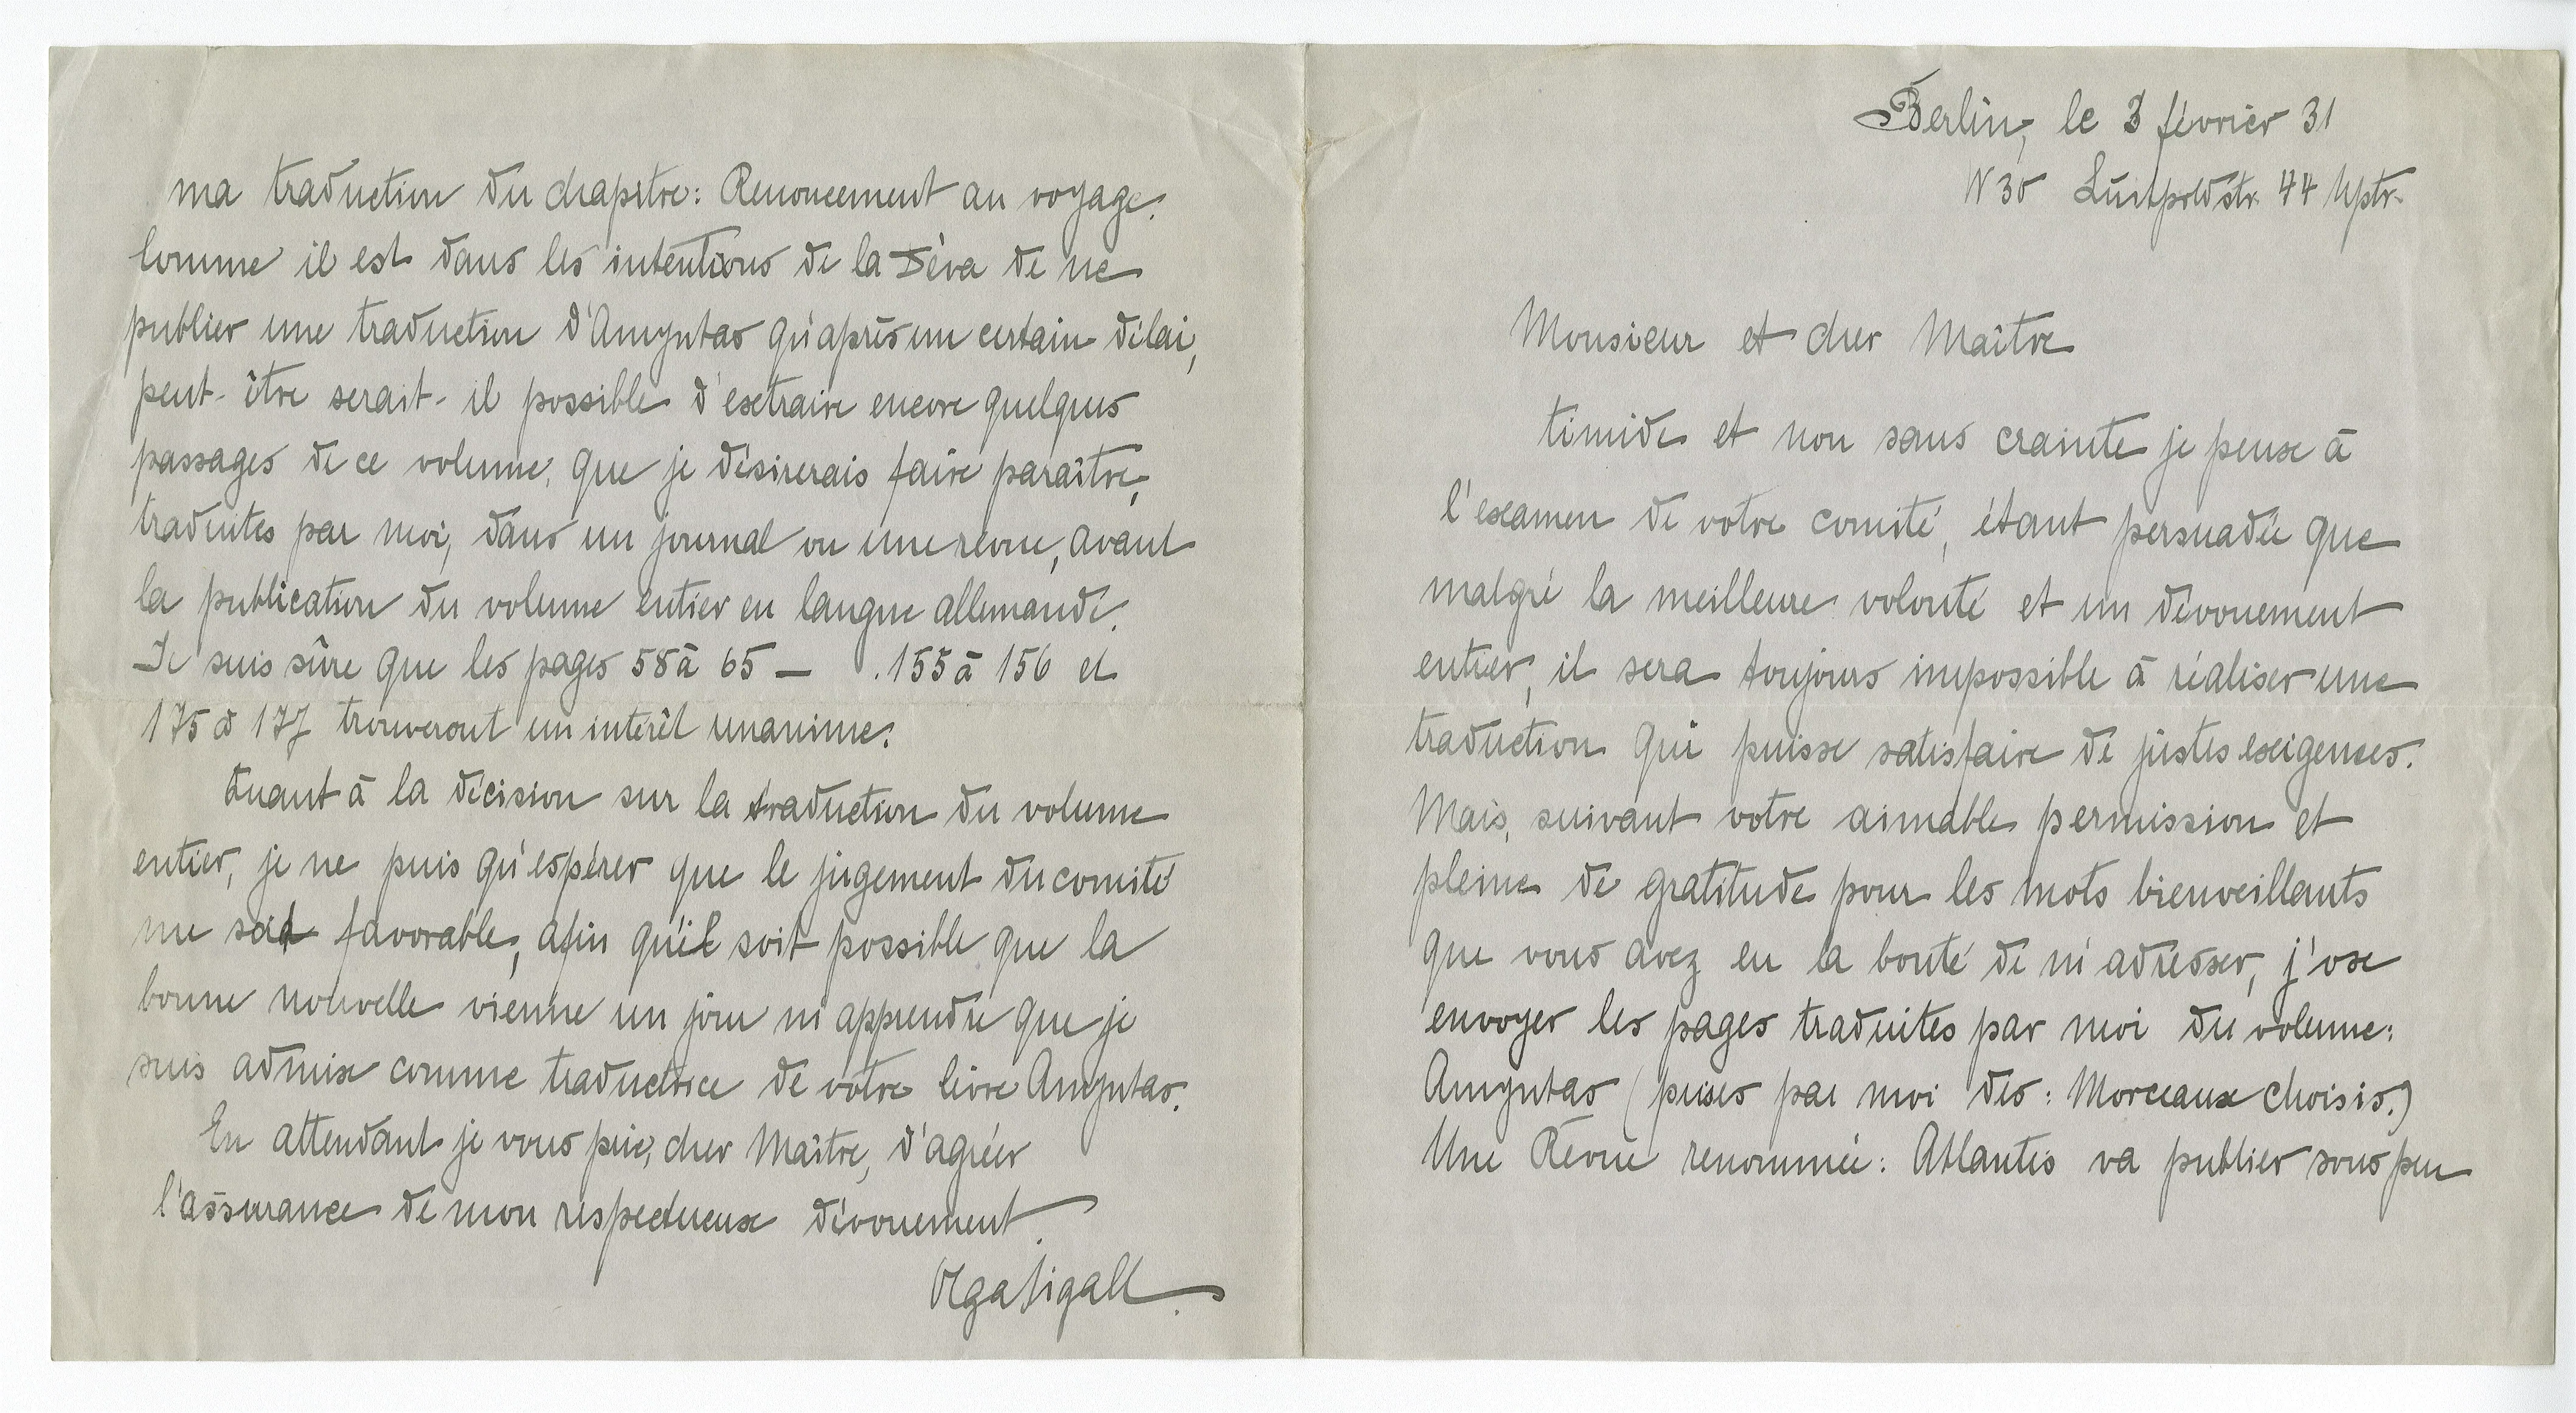 Berlin, le 3 février 31
W 30 Luitpoldstr. 44 Uptr.
Monsieur et cher Maître
timide et non sans crainte je pense à
l'examen de votre comité, étant persuadée que
malgré la meilleure volonté et un dévouement
entier, il sera toujours impossible à réaliser une
traduction qui puisse satisfaire de justes exigences.
Mais, suivant votre aimable permission et
pleine de gratitude pour les mots bienveillants
que vous avez eu la bonté de m'adresser, j'ose
envoyer les pages traduites par moi du volume:
Amyntas (prises par moi des: Morceaux choisis.)
Une Révue renommée: Atlantis va publier sous peu
ma traduction du chapitre: Renoncement au voyage.
Comme il est dans les intentions de la Déva de ne
publier une traduction d'Amyntas qu'après un certain délai,
peut-être serait-il possible d'extraire encore quelques
passages de ce volume, que je désirerais faire paraître,
traduites par moi, dans un journal ou une révue, avant
la publication du volume entier en langue allemande.
Je suis sûre que les pages 58 à 65 — . 155 à 156 et
175 à 177 trouveront un intérêt unanime.
Quant à la décision sur la traduction du volume
entier, je ne puis qu'espérer que le jugement du comité
me soit favorable, afin qu'il soit possible que la
bonne nouvelle vienne un jour m'apprendre que je
suis admise comme traductrice de votre livre Amyntas.
En attendant je vous prie, cher Maître, d'agréer
l'assurance de mon respectueux dévouement.
Olga Sigall.